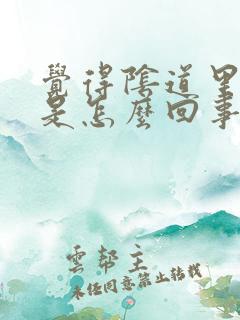 覺得陰道里
是怎麼回事
雲幫主
未经同意禁止转载